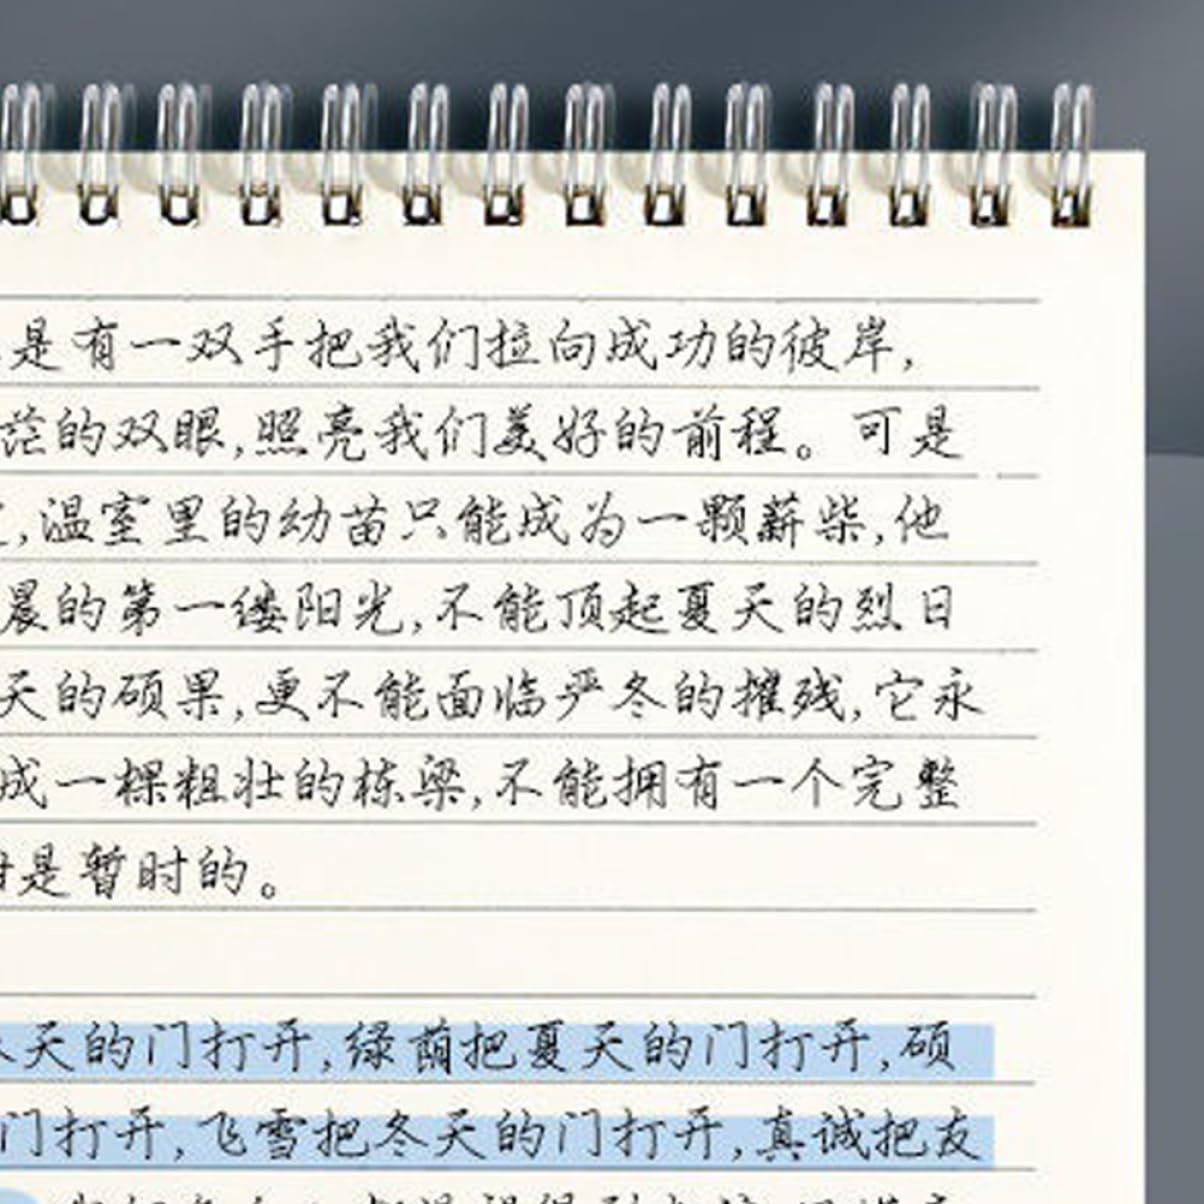 是有一双手把我们拉向成功的彼岸，
茫的双眼，照亮我们美好的前程。可是
，温室里的幼苗只能成为一颗薪柴，他
晨的第一缕阳光，不能顶起夏天的烈日
天的硕果，更不能面临严冬的摧残，它永
成一棵粗壮的栋梁，不能拥有一个完整
是暂时的。
天的门打开，绿荫把夏天的门打开，硕
门打开，飞雪把冬天的门打开，真诚把友